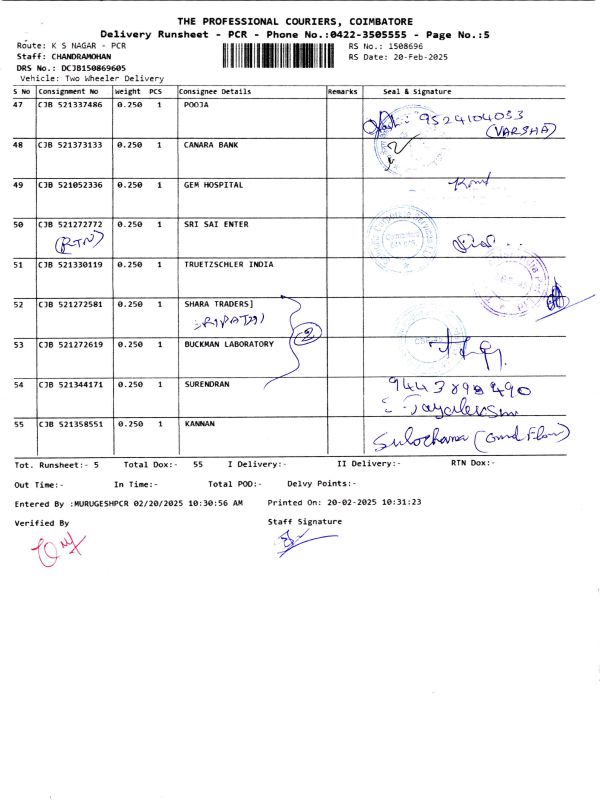 THE PROFESSIONAL COURIERS, COIMBATORE
Delivery Runsheet - PCR - Phone No.:0422-3505555 - Page No.:5
Route: K S NAGAR - PCR RS No.: 1508696
Staff: CHANDRAMOHAN RS Date: 20-Feb-2025
DRS No.: DCJB150869605
Vehicle: Two Wheeler Delivery
S No Consignment No Weight PCS Consignee Details Remarks Seal & Signature
47 CJB 521337486 0.250 1 POOJA
9524104033
(VARSHA)
48 CJB 521373133 0.250 1 CANARA BANK
49 CJB 521052336 0.250 1 GEM HOSPITAL
50 CJB 521272772 0.250 1 SRI SAI ENTER
(RTN)
51 CJB 521330119 0.250 1 TRUETZSCHLER INDIA
52 CJB 521272581 0.250 1 SHARA TRADERS]
2
53 CJB 521272619 0.250 1 BUCKMAN LABORATORY
54 CJB 521344171 0.250 1 SURENDRAN 9443898490
55 CJB 521358551 0.250 1 KANNAN Sulochana
Tot. Runsheet:- 5 Total Dox:- 55 I Delivery:- II Delivery:- RTN Dox:-
Out Time:- In Time:- Total POD:- Delvy Points:-
Entered By :MURUGESHPCR 02/20/2025 10:30:56 AM Printed On: 20-02-2025 10:31:23
Verified By Staff Signature